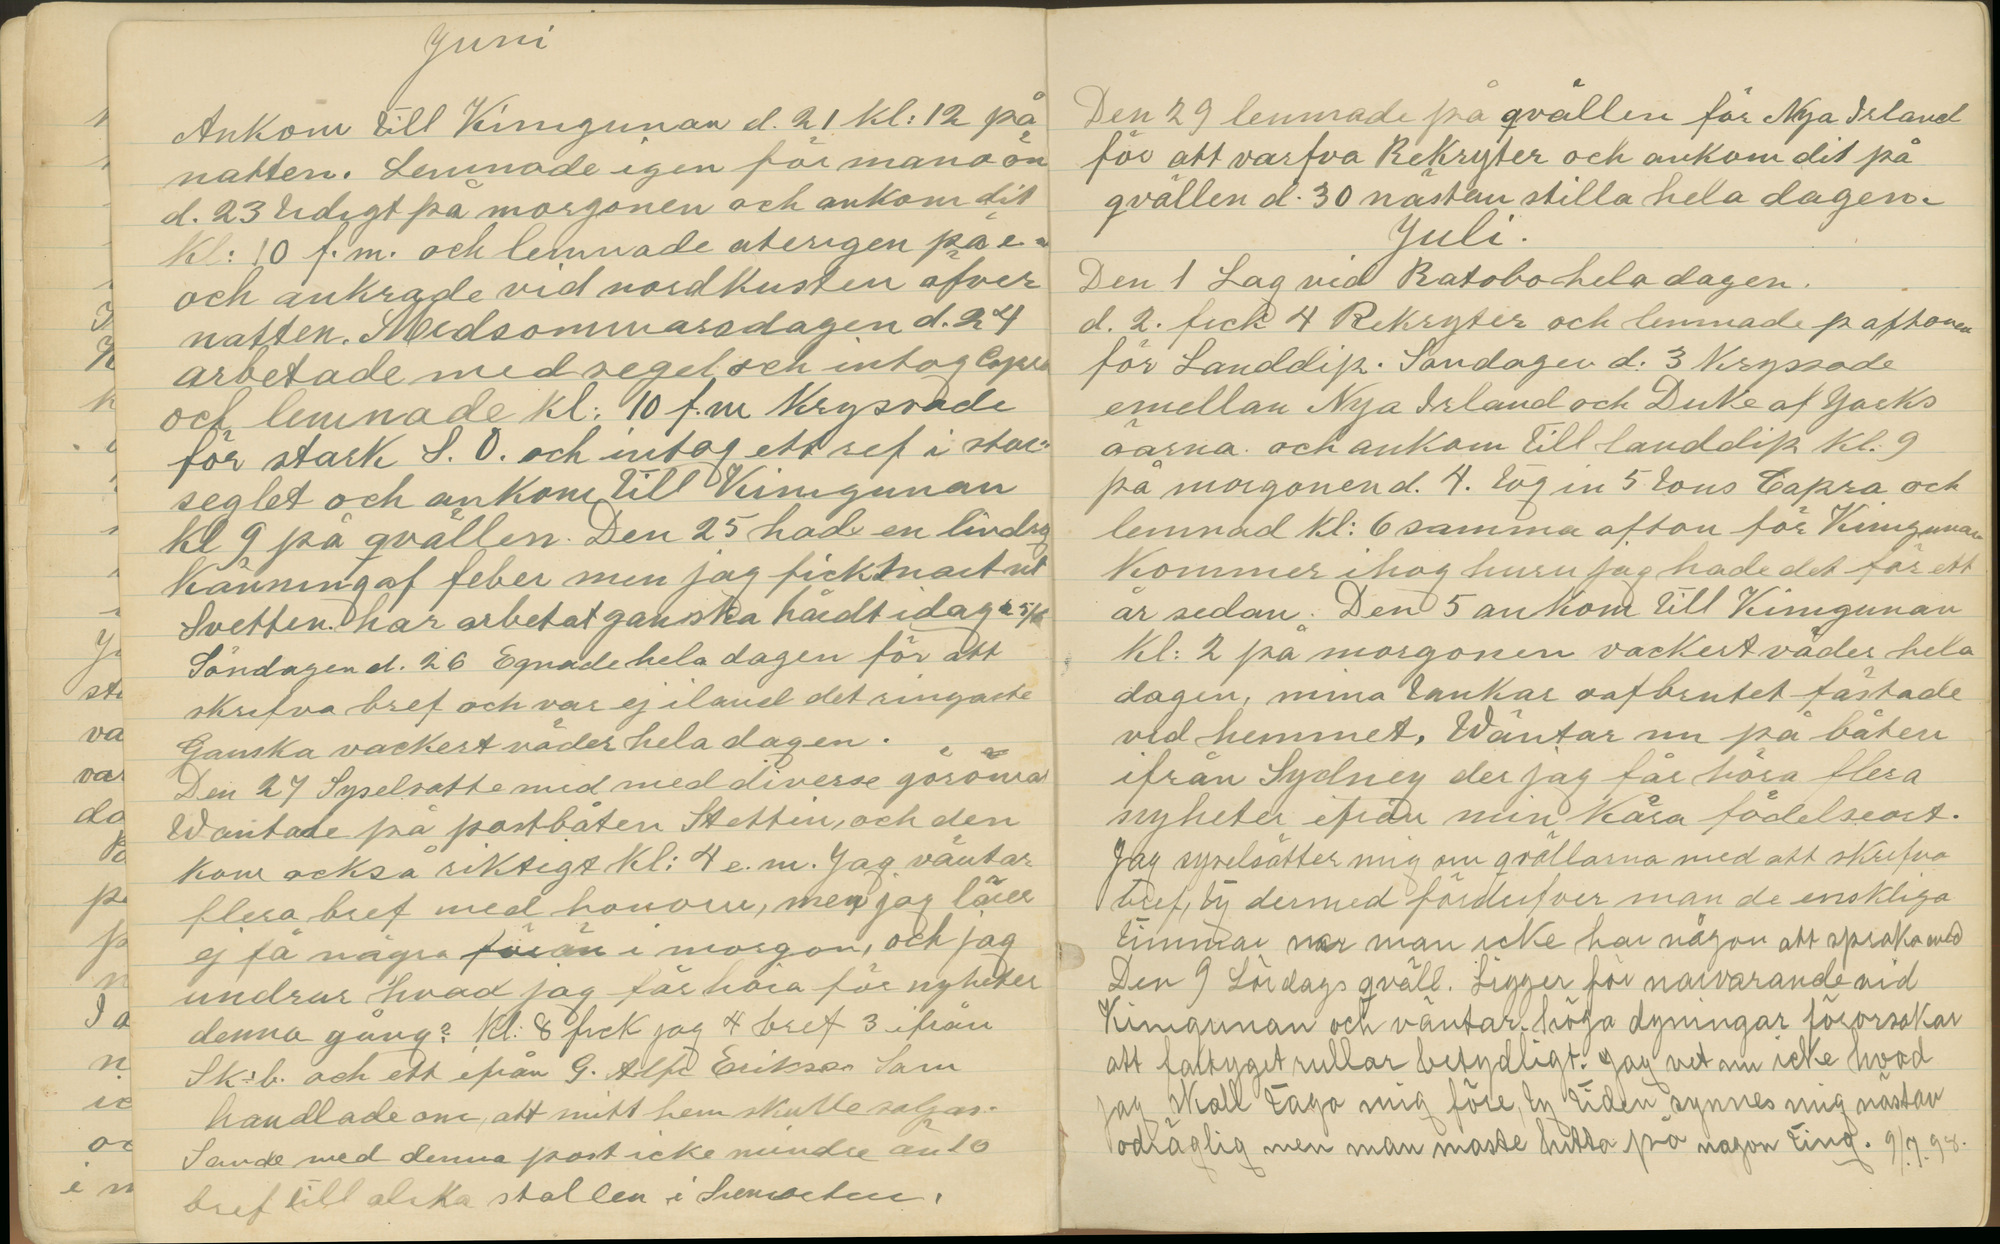 Juni
Ankom till Kimgunan d. 21 kl: 12 på
natten. Lemnade igen för manoön
d. 23 tidigt på morgonen och ankom dit
kl: 10 f. m. och lemnade aterigen på e.
och ankrade vid nordkusten öfver
natten. Midsommarsdagen d. 24
arbetade med segel och intog Copra
och lemnade kl: 10 f.m Kryssade
för stark S. O. och intog ett ref i stor-
seglet och ankom till Kimgunan
kl 9 på qvällen. Den 25 hade en lindrig
känning af feber men jag fick snart ut
Svetten. har arbetat ganska hårdt idag 25/6
Söndagen d. 26 Egnade hela dagen för att
skrifva bref och var ej iland det ringaste
Ganska vackert väder hela dagen.
Den 27 Syselsatte mid med diverse göromal
Wäntade på postbåten Stettin, och den
kom också riktigt kl: 4 e. m. Jag väntar
flera bref med honom, men jag lärer
ej få några förän i morgon, och jag
undrar hvad jag får höra för nyheter
denna gång? Kl: 8 fick jag 4 bref 3 ifrån
Sk:b. och ett ifrån G. Alfr Erikson Som
handlade om, att mitt hem skulle saljas.
Sande med denna post icke mindre än 10
bref till olika stallen i hemorten.
Den 29 lemnade på qvällen för Nya Irland
för att varfva Rekryter och ankom dit på
qvällen d. 30 nästan stilla hela dagen.
Juli.
Den 1 Lag vid Ratobo hela dagen.
d. 2. fick 4 Rekryter och lemnade p aftonen
för Landdip. Söndagen d. 3 Kryssade
emellan Nya Irland och Duke af Yorks
öarna. och ankom till landdip kl. 9
på morgonen d. 4. tog in 5 tons Capra och
lemnad kl: 6 samma afton för Kimgunan
Kommer ihog huru jag hade det för ett
år sedan. Den 5 ankom till Kimgunan
kl: 2 på morgonen vackert väder hela
dagen, mina tankar oafbrutet fästade
vid hemmet. Wäntar nu på båten
ifrån Sydney der jag får höra flera
nyheter ifrån min kära födelseort.
Jag syselsätter mig om qvällarna med att skrifva
bref, ty dermed fördrifver man de enskliga
timmar när man icke har någon att språka med
Den 9 Lördags qväll. Ligger för narvarande vid
Kimgunan och väntar. höga dyningar förorsakar
att fartyget rullar betydligt. Jag vet nu icke hvad
jag skall taga mig före, ty tiden synnes mig nästan
odräglig men man maste hitta på nagon ting. 9/7.98.